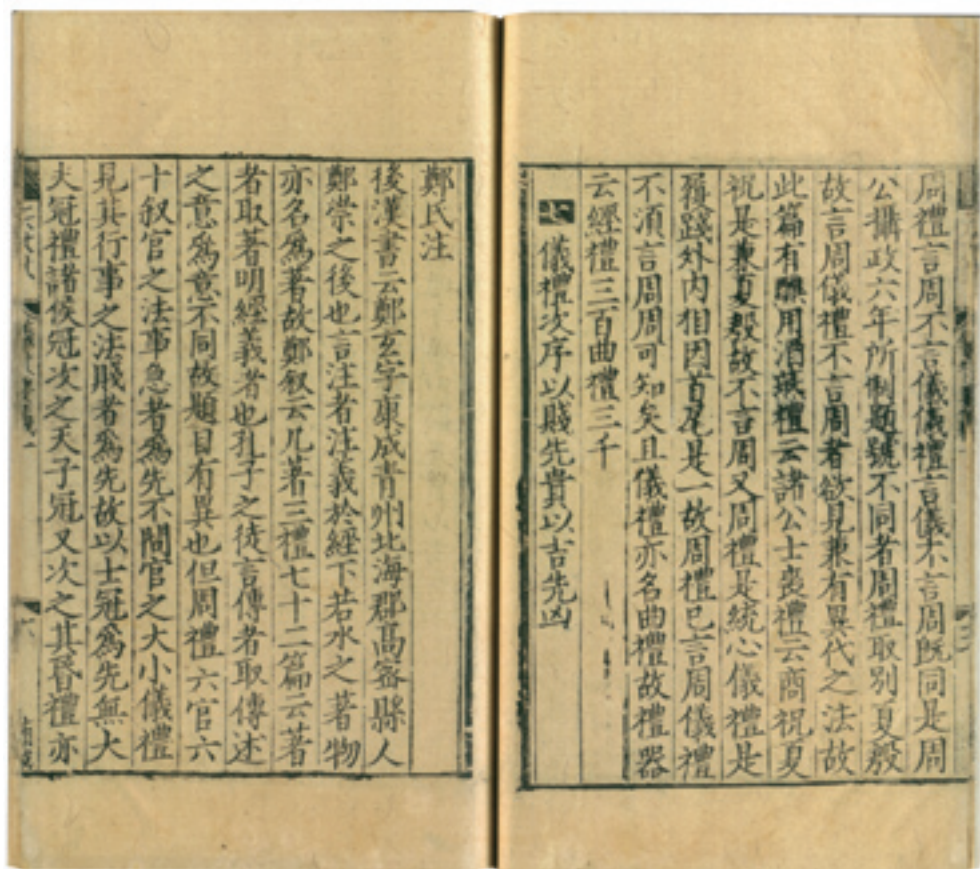 周禮言周不言儀儀禮言儀不言周旣同是周
公攝政六年所制題號不同者周禮取別夏殷
故言周儀禮不言周者欲見兼有異代之法故
此篇有醮用酒燕禮云諸公士喪禮云商祝夏
祝是兼夏殷故不言周又周禮是統心儀禮是
履踐外内相因首尾是一故周禮已言周儀禮
不須言周周可知矣且儀禮亦名曲禮故禮器
云經禮三百曲禮三千
七 儀禮次序以賤先貴以吉先凶
鄭氏注
後漢書云鄭玄字康成青州北海郡髙密縣人
鄭崇之後也言注者注義於經下若水之著物
亦名爲著故鄭叙云凡著三禮七十二篇云著
者取著明經義者也孔子之徒言傳者取傳述
之意爲意不同故題目有異也但周禮六官六
十叙官之法事急者爲先不問官之大小儀禮
見其行事之法賤者爲先故以士冠爲先無大
夫冠禮諸侯冠次之天子冠又次之其昏禮亦